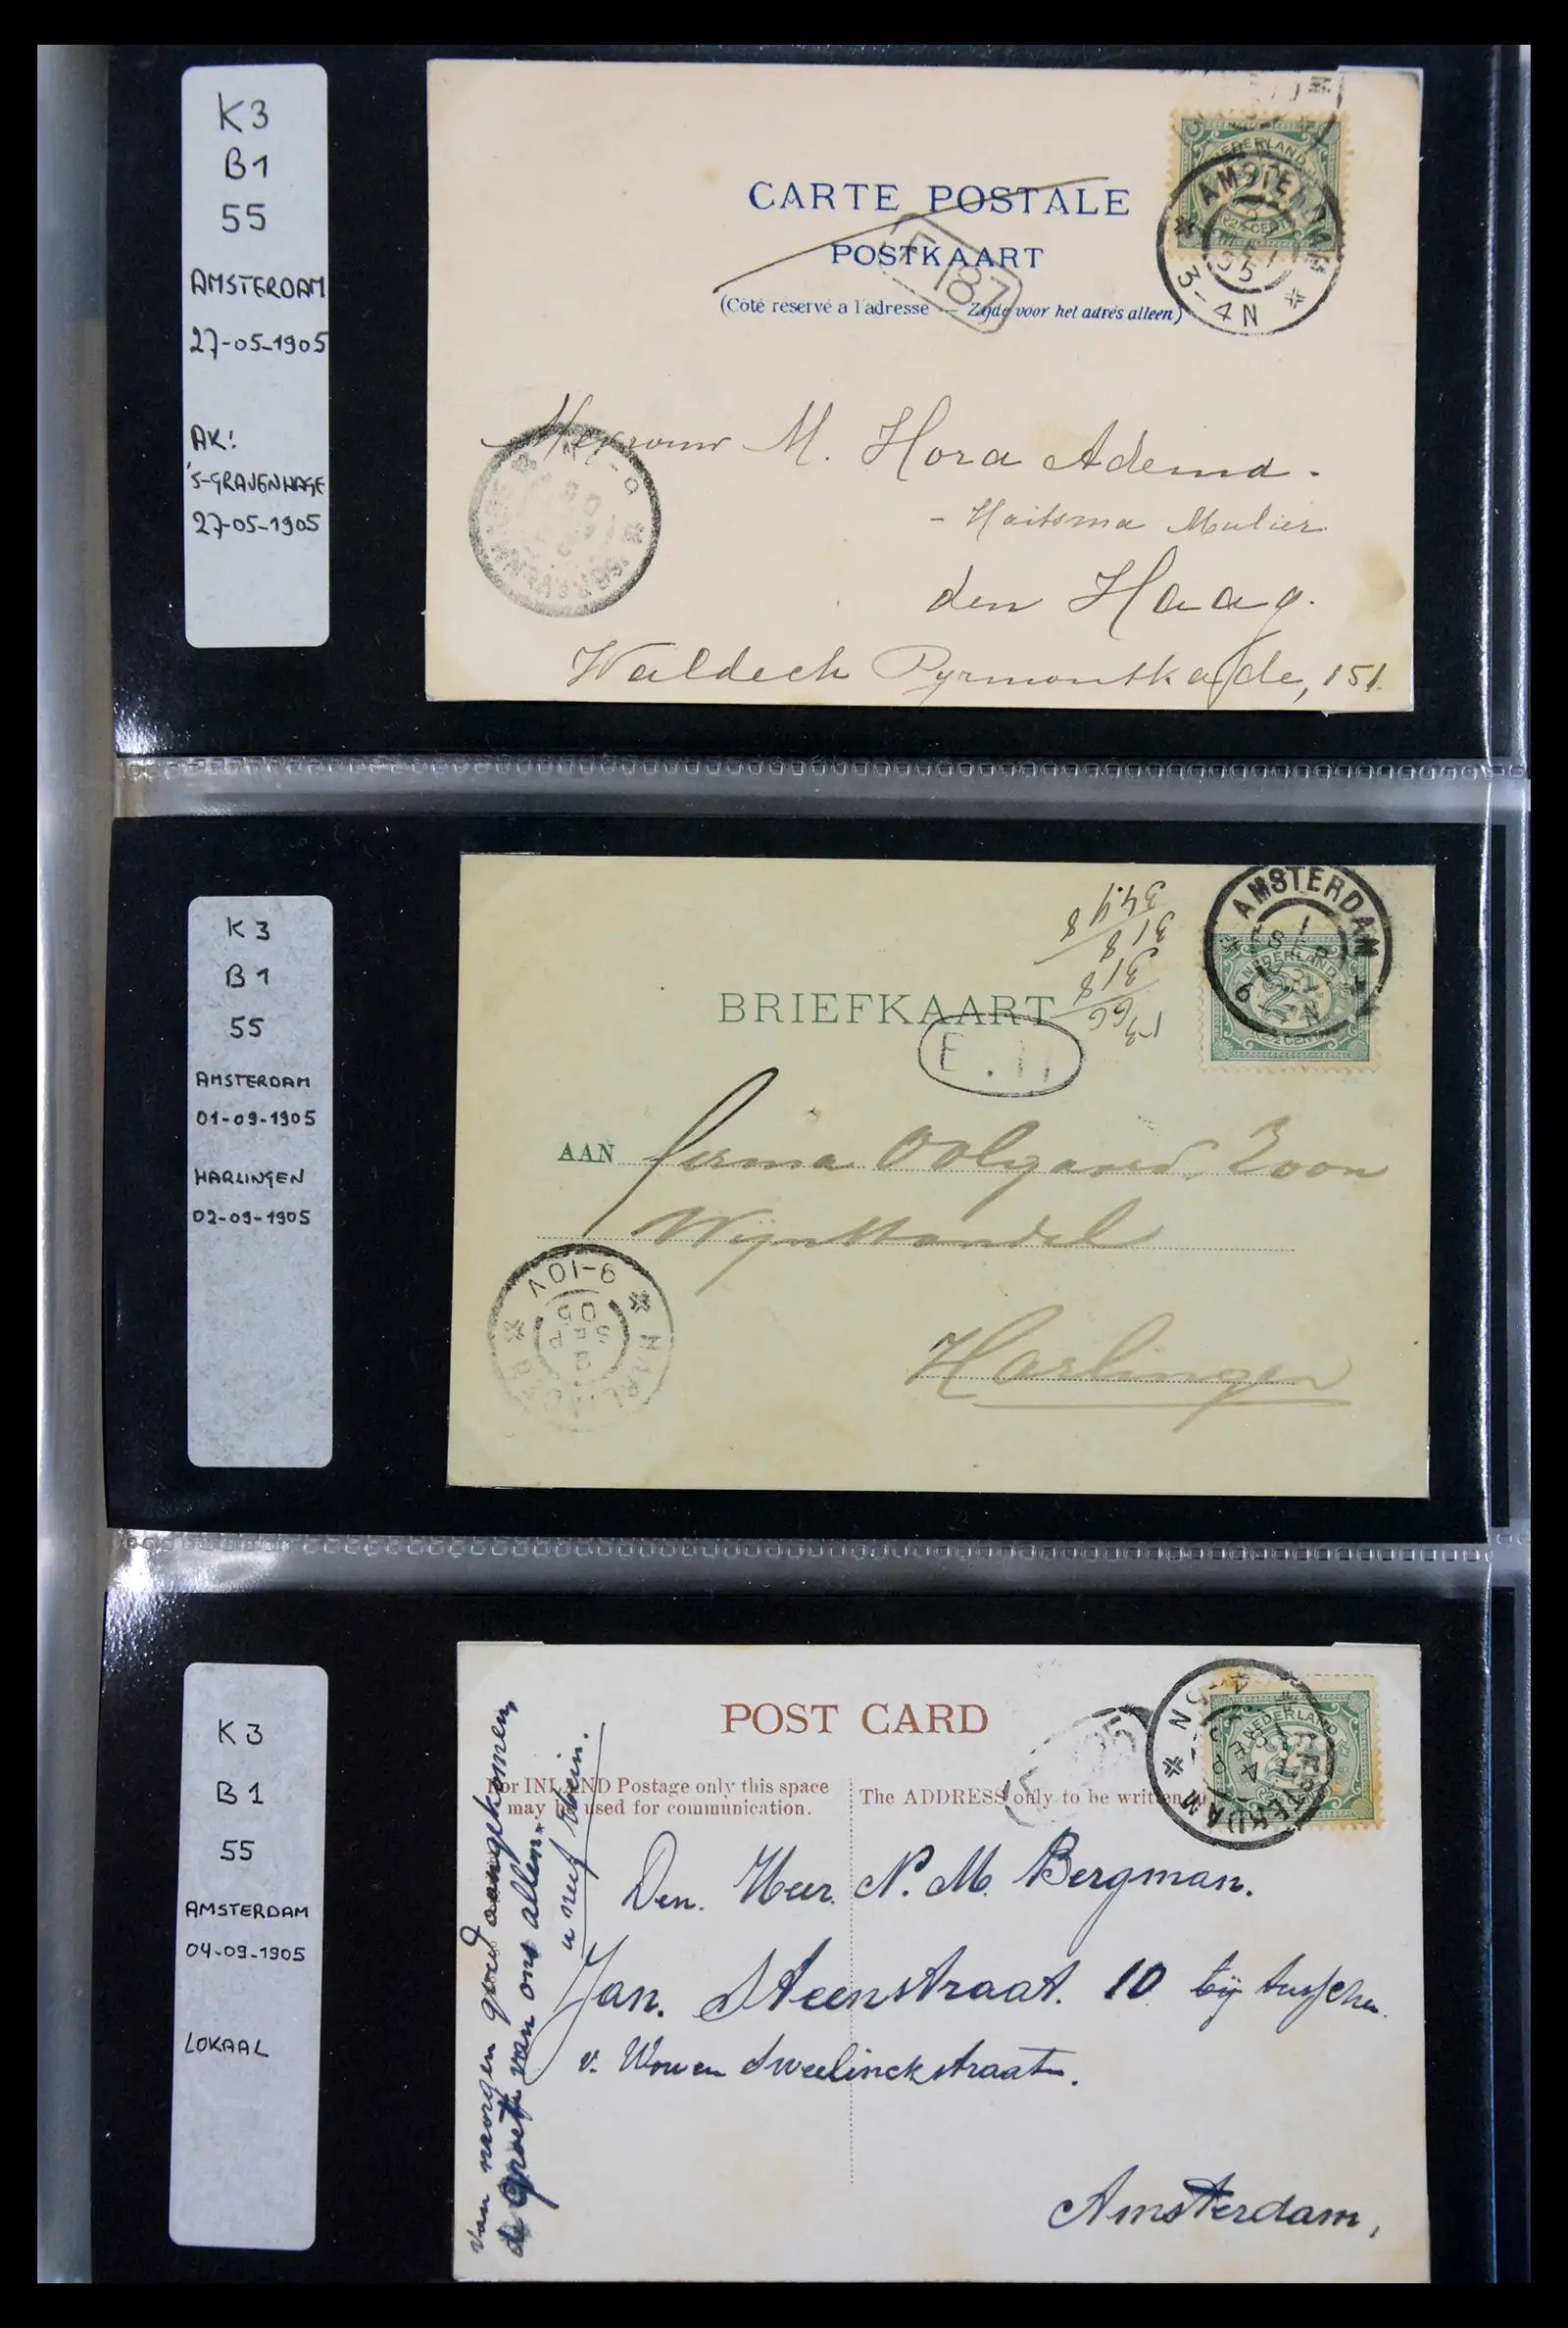 K3
B1
55
AMSTERDAM
27-05-1905
AK:
'S-GRAVENHAGE
27-05-1905
CARTE POSTALE
POSTKAART
(Côté reservé a l'adresse — Zijde voor het adres alleen)
NEDERLAND
AMSTERDAM
3-4N
87
Mevrouw M. Hora Adema -
- Haitsma Mulier
den Haag.
Waldeck Pyrmontkade, 151.
K3
B1
55
AMSTERDAM
01-09-1905
HARLINGEN
02-09-1905
344 8
31 8
318
66
BRIEFKAART
AMSTERDAM
1
SEP
NEDERLAND
AAN firma Zoon
Wijnhandel
Harlingen
9-10V
05
SEP
K3
B1
55
AMSTERDAM
04-09-1905
LOKAAL
POST CARD
For INLAND Postage only this space
may be used for communication.
The ADDRESS only to be written
NEDERLAND
Den. Heer. N. M. Bergman.
Jan. Steenstraat. 10 bij tusschen
v. Wou en Sweelinckstraat.
Amsterdam,
Van morgen goed aangekomen,
de groet van ons allen.
u neef